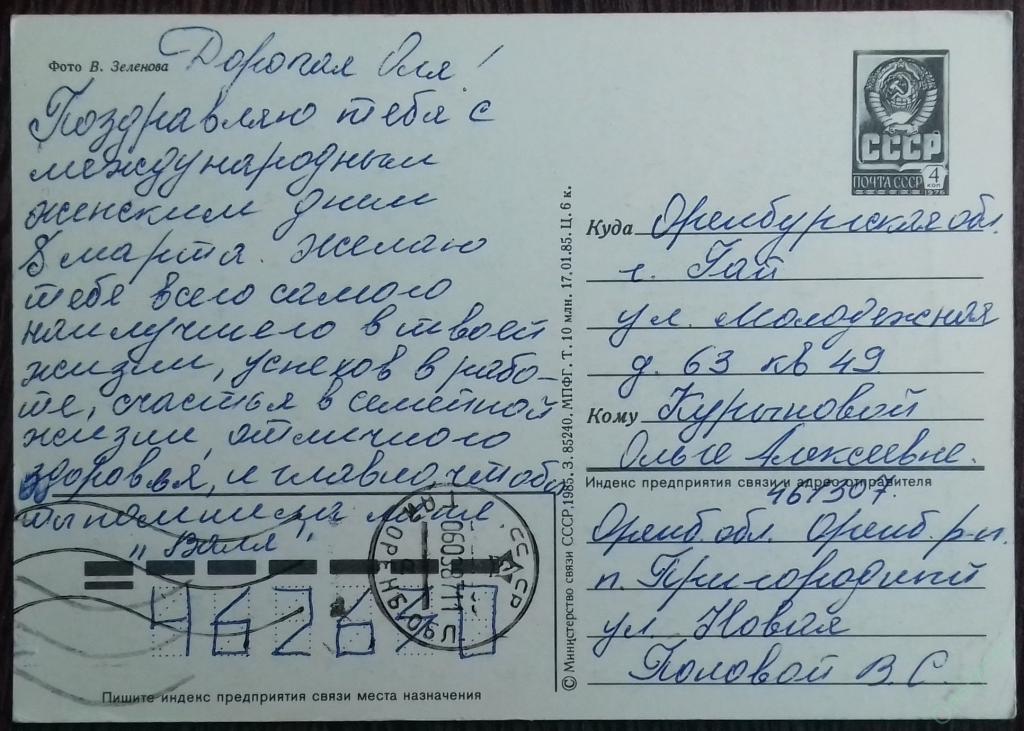 Фото В. Зеленова
Дорогая Оля!
Поздравляю тебя с
международным
женским днем
8 марта. Желаю
тебе всего самого
наилучшего в твоей
жизни, успехов в рабо-
те, счастья в семейной
жизни, отличного
здоровья, и главно чтобы
ты помнила меня,
"Валя"
Пишите индекс предприятия связи места назначения
© Министерство связи СССР, 1985. З. 85240. МПФГ. Т. 10 млн. 17.01.85. Ц. 6 к.
СССР
ПОЧТА СССР
4
КОП
1976
Куда Оренбургская обл.
г. Гай
ул. Молодежная
д. 63 кв 49
Кому Курыновой
Ольге Алексеевне.
Индекс предприятия связи и адрес отправителя
461307.
Оренб. обл. Оренб. р-н.
п. Пригородный
ул. Новая
Половой В. С.